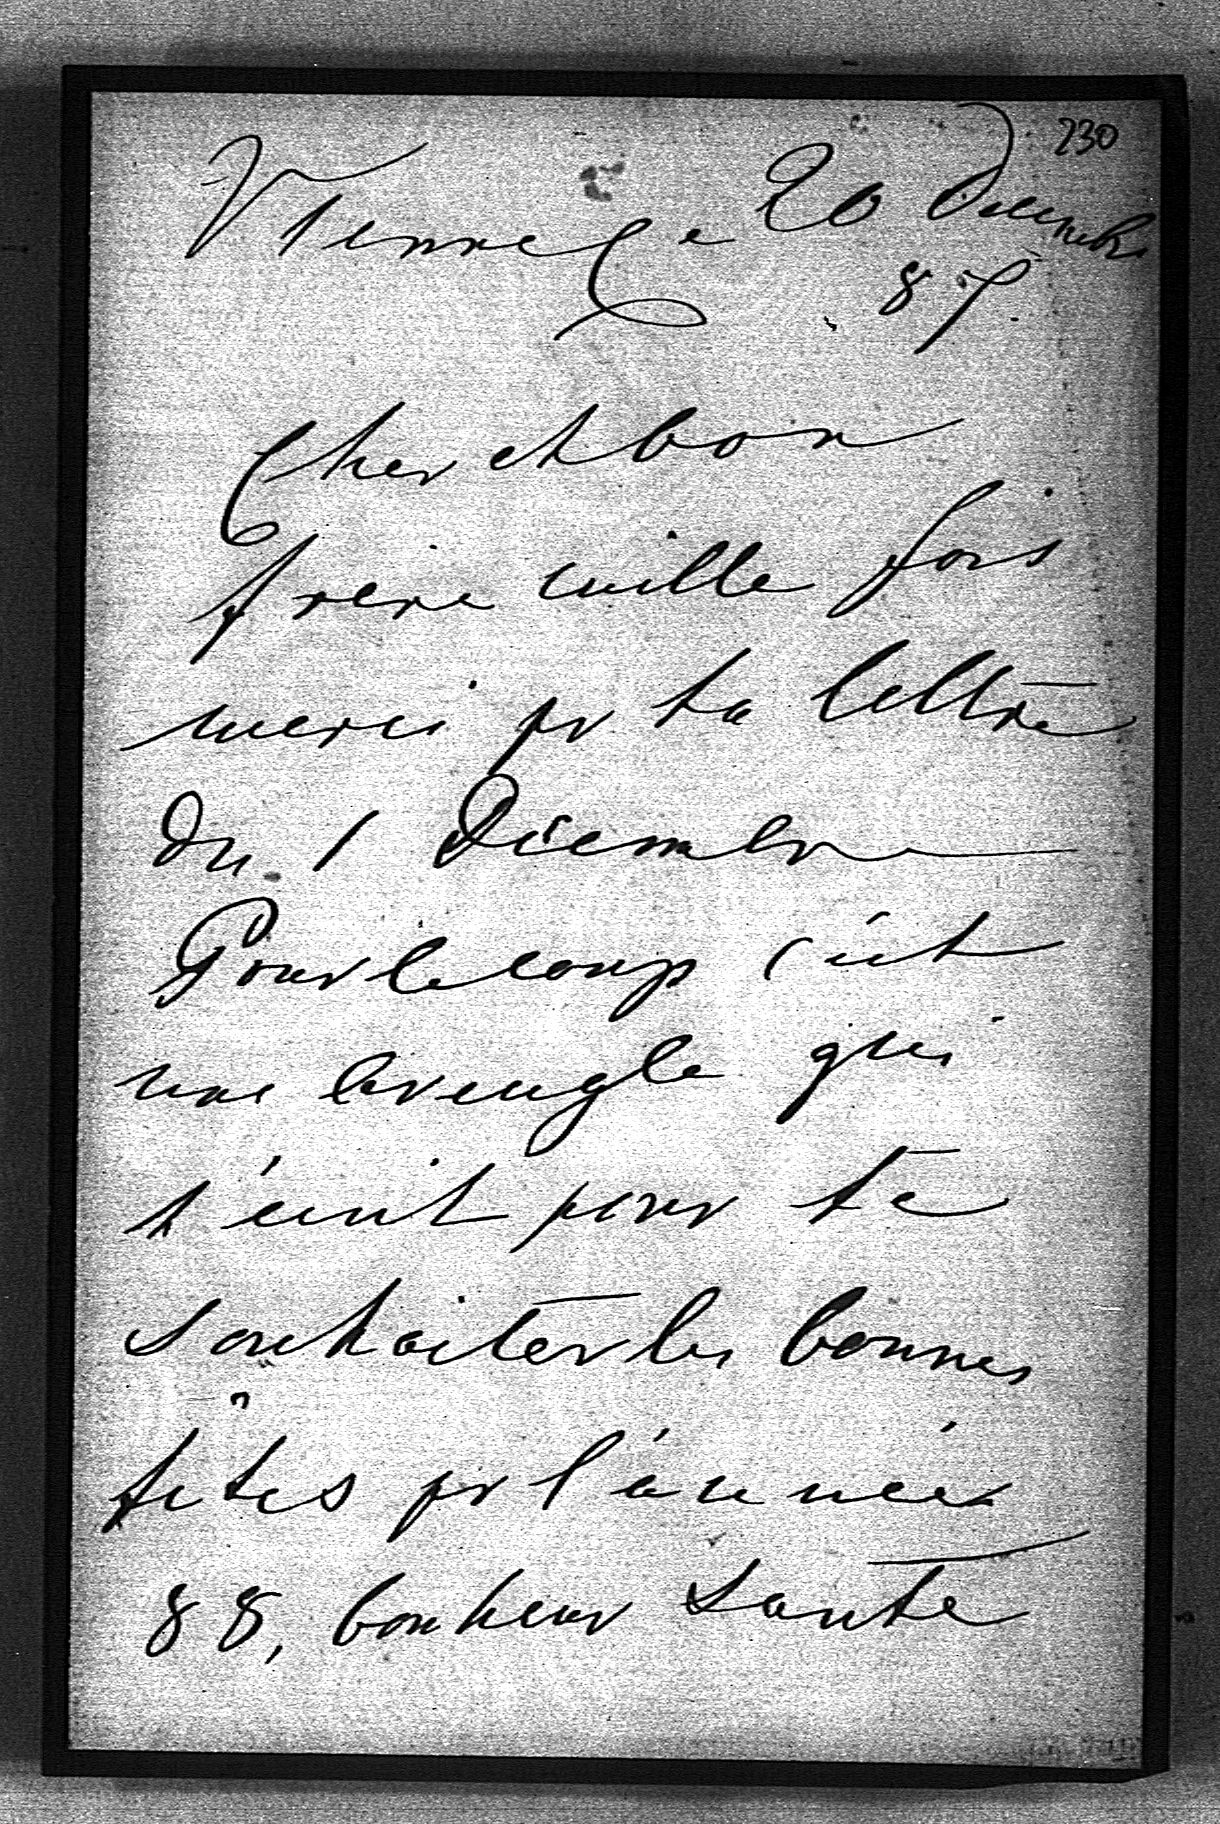 230
Vienne Le 20 Decembre
87.
Cher et bon
frere mille fois
merci pr ta lettre
du 1 Décembre
Pour le coup c'est
une aveugle qui
t'écrit pour te
souhaiter les bonnes
fêtes pr l'année
88, bonheur Santé